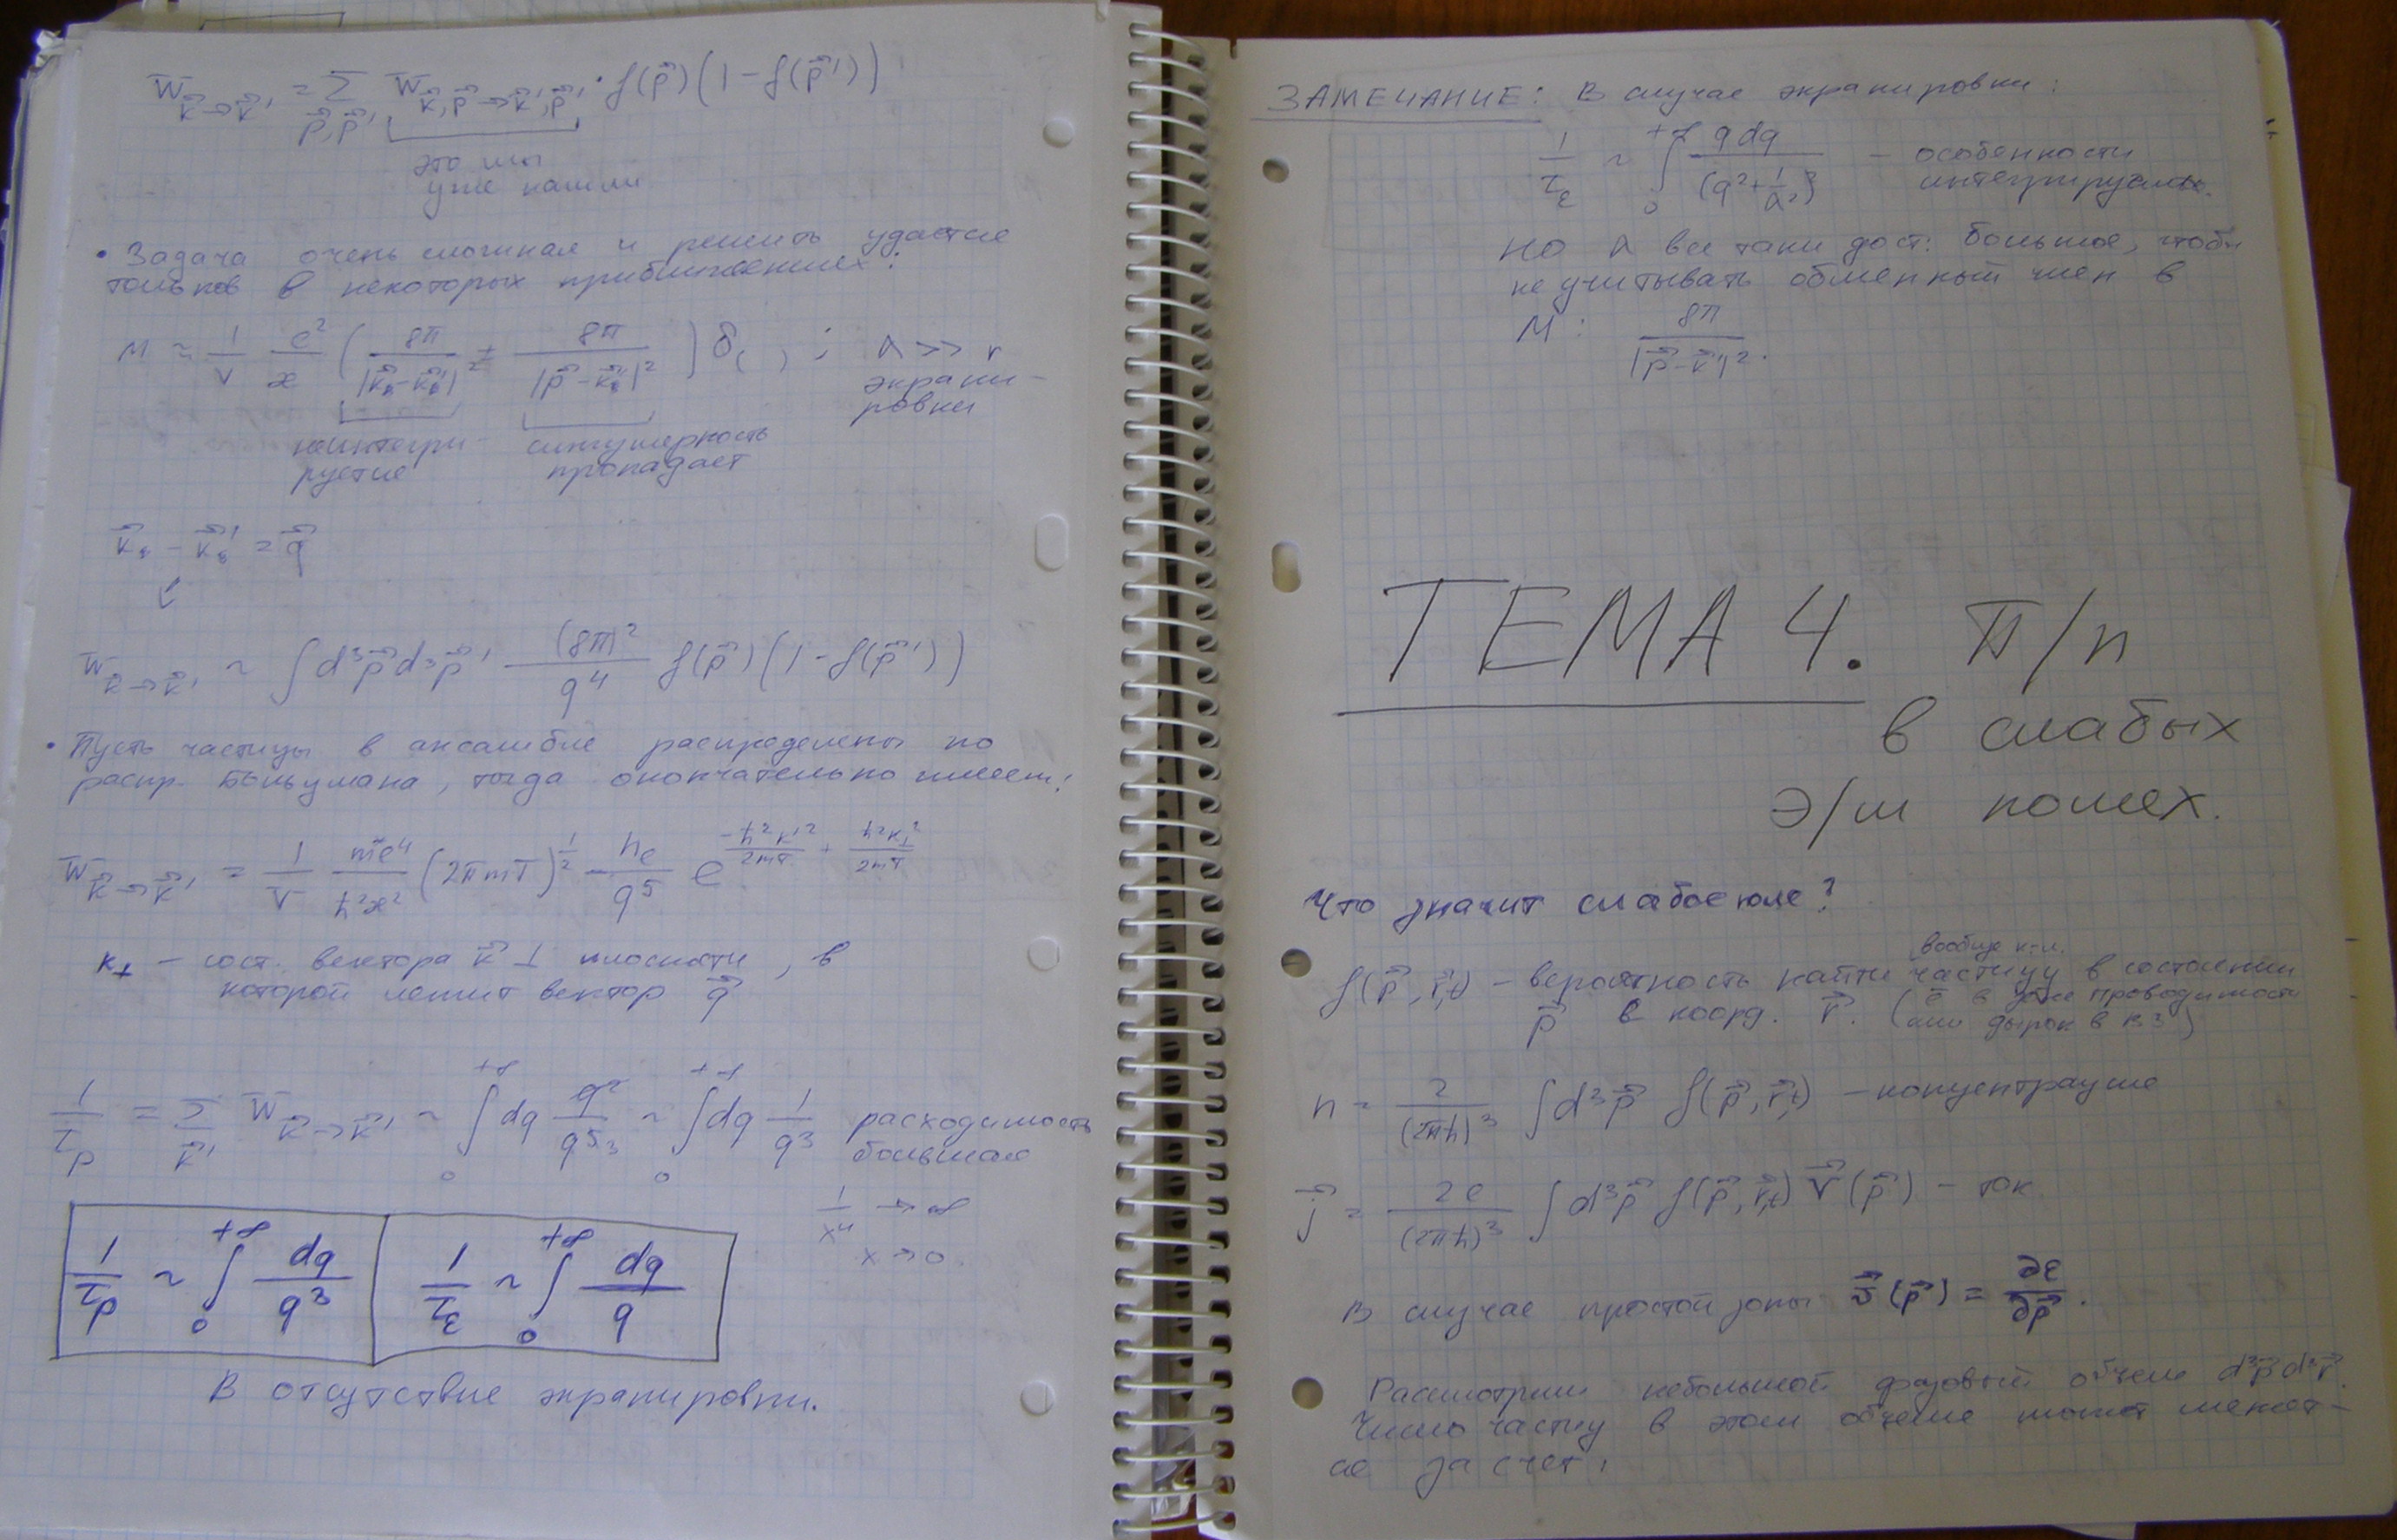 W_{k⃗→k⃗'} = Σ_{p⃗,p⃗'} W_{k⃗,p⃗→k⃗',p⃗'} · f(p⃗)(1 − f(p⃗'))
это мы
уже нашли
• Задача очень сложная и решить удастся
только в некоторых приближениях:
M ≈ 1/V e²/æ ( 8π/|k⃗ − k⃗'|² ± 8π/|p⃗ − k⃗'|² ) δ( , ; λ >> r
экрани-
ровки
неинтегри-
руется
сингулярность
пропадает
k⃗ − k⃗' = q⃗
W_{k⃗→k⃗'} ~ ∫ d³p⃗ d³p⃗' (8π)²/q⁴ f(p⃗)(1 − f(p⃗'))
• Пусть частицы в ансамбле распределены по
распр. Больцмана, тогда окончательно имеем:
W_{k⃗→k⃗'} = 1/V me⁴/ħ²æ² (2πmT)^{1/2} n_e/q⁵ e^{−ħ²k'²/2mT + ħ²k⊥²/2mT}
k⊥ – сост. вектора k⃗ ⊥ плоскости, в
которой лежит вектор q⃗
1/τ_p = Σ_{k⃗'} W_{k⃗→k⃗'} ~ ∫₀^{+∞} dq q²/q⁵ ~ ∫₀^{+∞} dq 1/q³ расходимость
большая
1/x⁴ → ∞
x → 0.
1/τ_p ~ ∫₀^{+∞} dq/q³
1/τ_ε ~ ∫₀^{+∞} dq/q
В отсутствие экранировки.
ЗАМЕЧАНИЕ: В случае экранировки:
1/τ_ε ~ ∫₀^{+∞} q dq/(q² + 1/λ²) – особенности
интегрируемы.
НО λ все таки дост. большое, чтобы
не учитывать обменный член в
M: 8π/|p⃗ − k⃗'|².
ТЕМА 4. П/п
в слабых
э/м полях.
Что значит слабое поле?
вообще
f(p⃗, r⃗,t) – вероятность найти частицу в состоянии
p⃗ в коорд. r⃗. (ē в зоне проводимости
или дырок в ВЗ)
n = 2/(2πħ)³ ∫ d³p⃗ f(p⃗, r⃗,t) – концентрация
j⃗ = 2e/(2πħ)³ ∫ d³p⃗ f(p⃗, r⃗,t) V⃗(p⃗) – ток
В случае простой зоны v⃗(p⃗) = ∂ε/∂p⃗.
Рассмотрим небольшой фазовый объем d³p⃗ d³r⃗.
Число частиц в этом объеме может менят-
ся за счет: